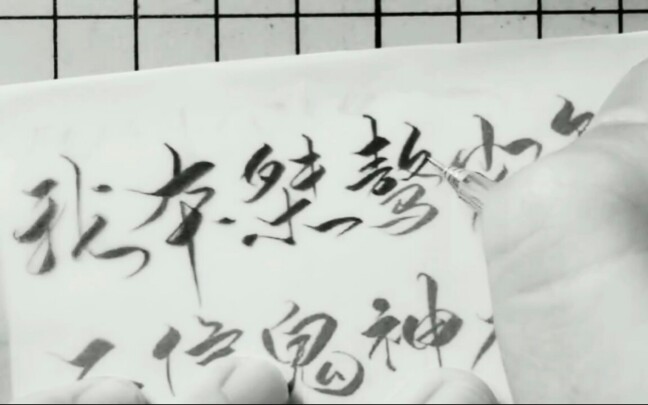 我本桀骜少年
不信鬼神